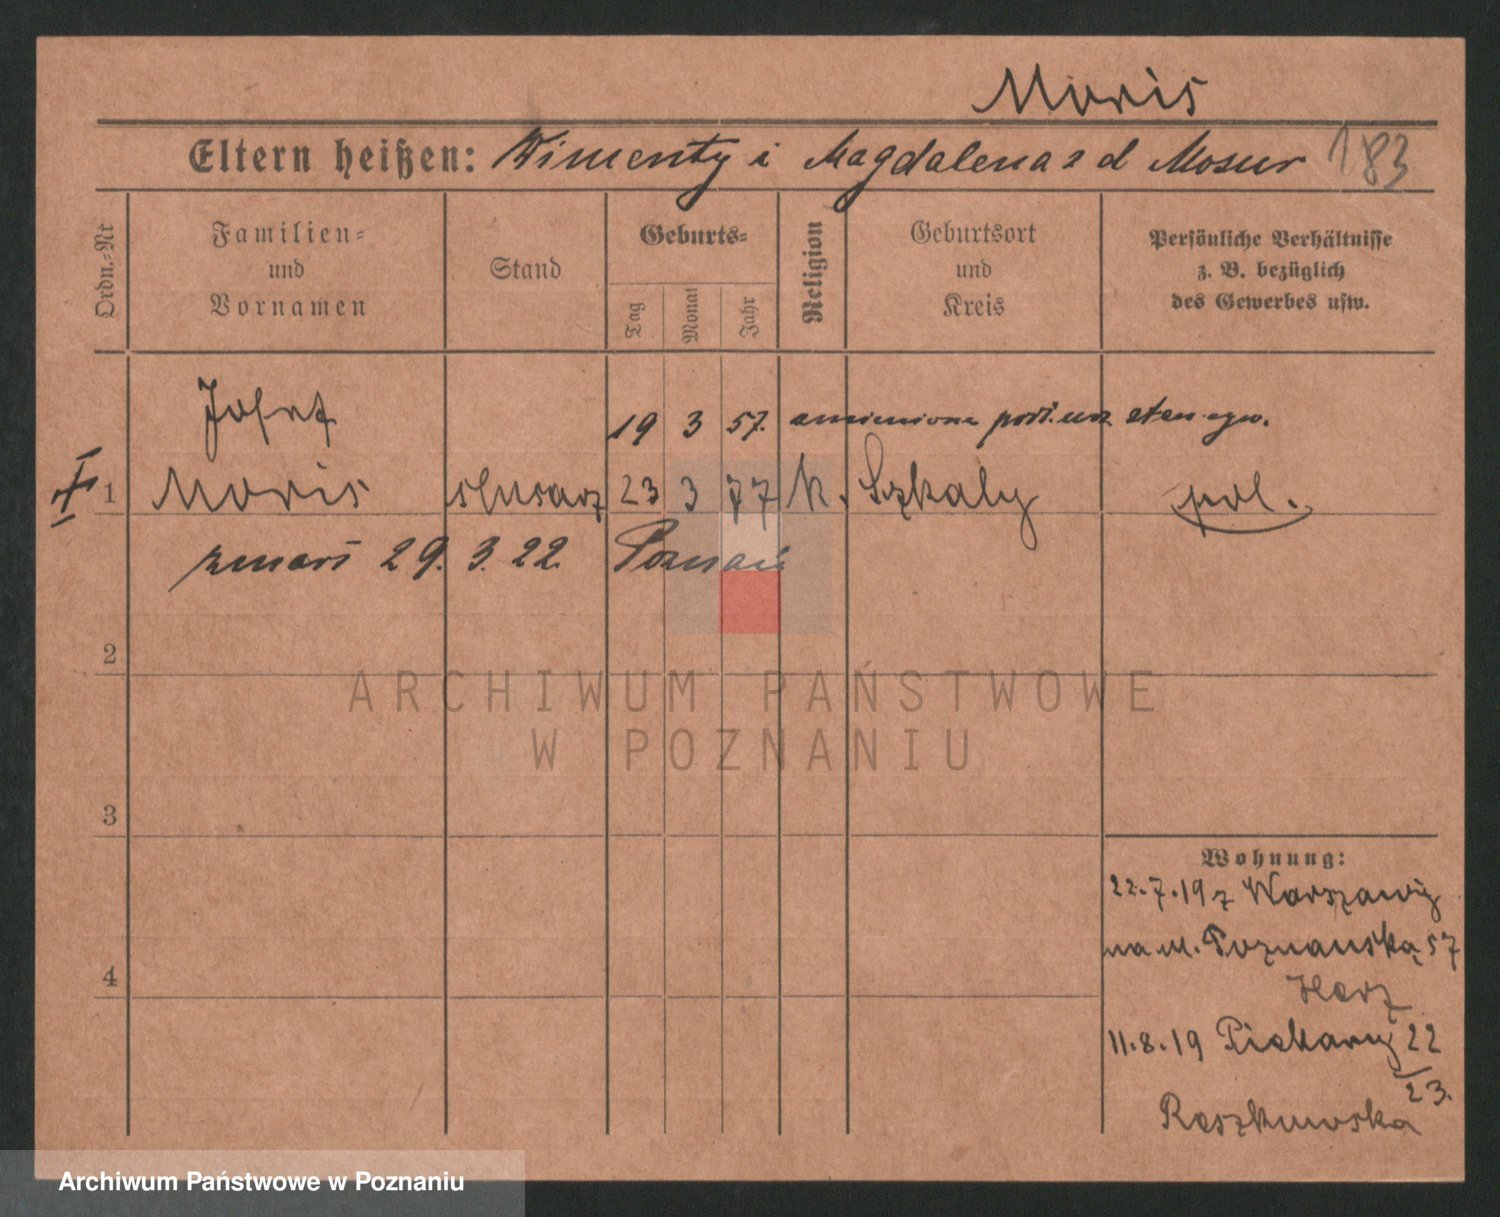 Moris
Eltern heißen: Wimenty i Magdalena z d Mosur 183
Ordn.-Nr
Familien-
und
Vornamen
Stand
Geburts-
Tag
Monat
Jahr
Religion
Geburtsort
und
Kreis
Persönliche Verhältnisse
z. B. bezüglich
des Gewerbes usw.
Józef
19 3 57.
1 Moris ślusarz 23 3 77 k. Szkaly pol.
zmarł 29. 3. 22. Poznań
2
ARCHIWUM PAŃSTWOWE
W POZNANIU
3
4
Wohnung:
22.7.19 z Warszawy
na ul. Poznańską 57
Herz
11.8.19 Piekary 22
23.
Reszkowska
Archiwum Państwowe w Poznaniu